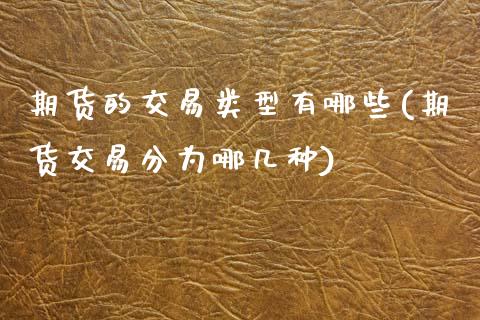 期货的交易类型有哪些(期
货交易分为哪几种)